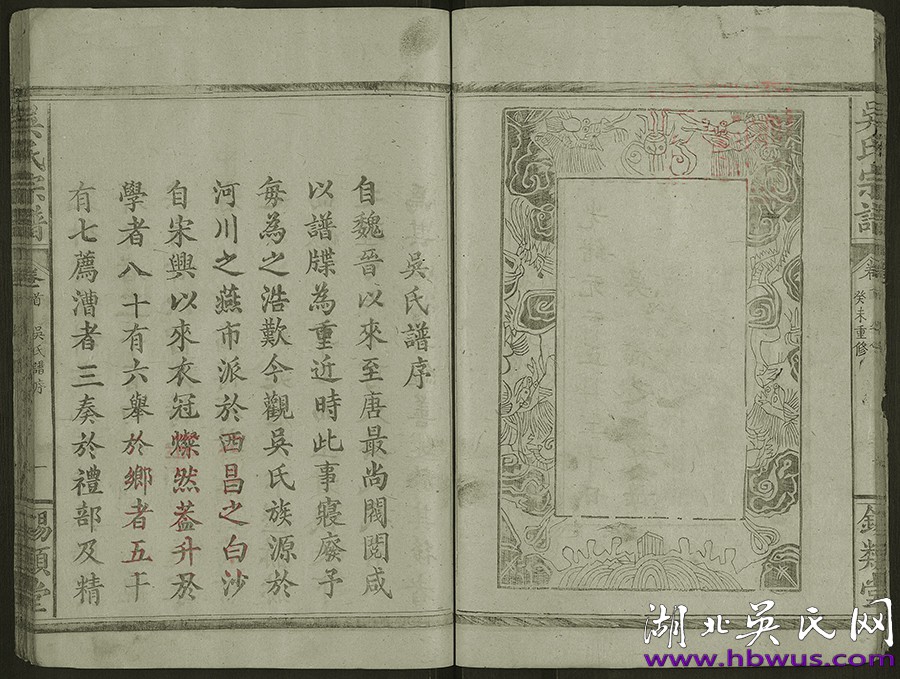 吳氏宗譜
卷
癸未重修
類堂
吳氏譜序
自魏晉以來至唐最尚閥閱咸
以譜牒為重近時此事寢廢予
每為之浩歎今觀吳氏族源於
河川之燕市派於西昌之白沙
自宋興以來衣冠燦然葢升
學者八十有六舉於鄉者五十
有七薦漕者三奏於禮部及精
吳氏宗譜
卷首
吳氏譜序
一
錫類堂
湖北吳氏网
www.hbwus.com